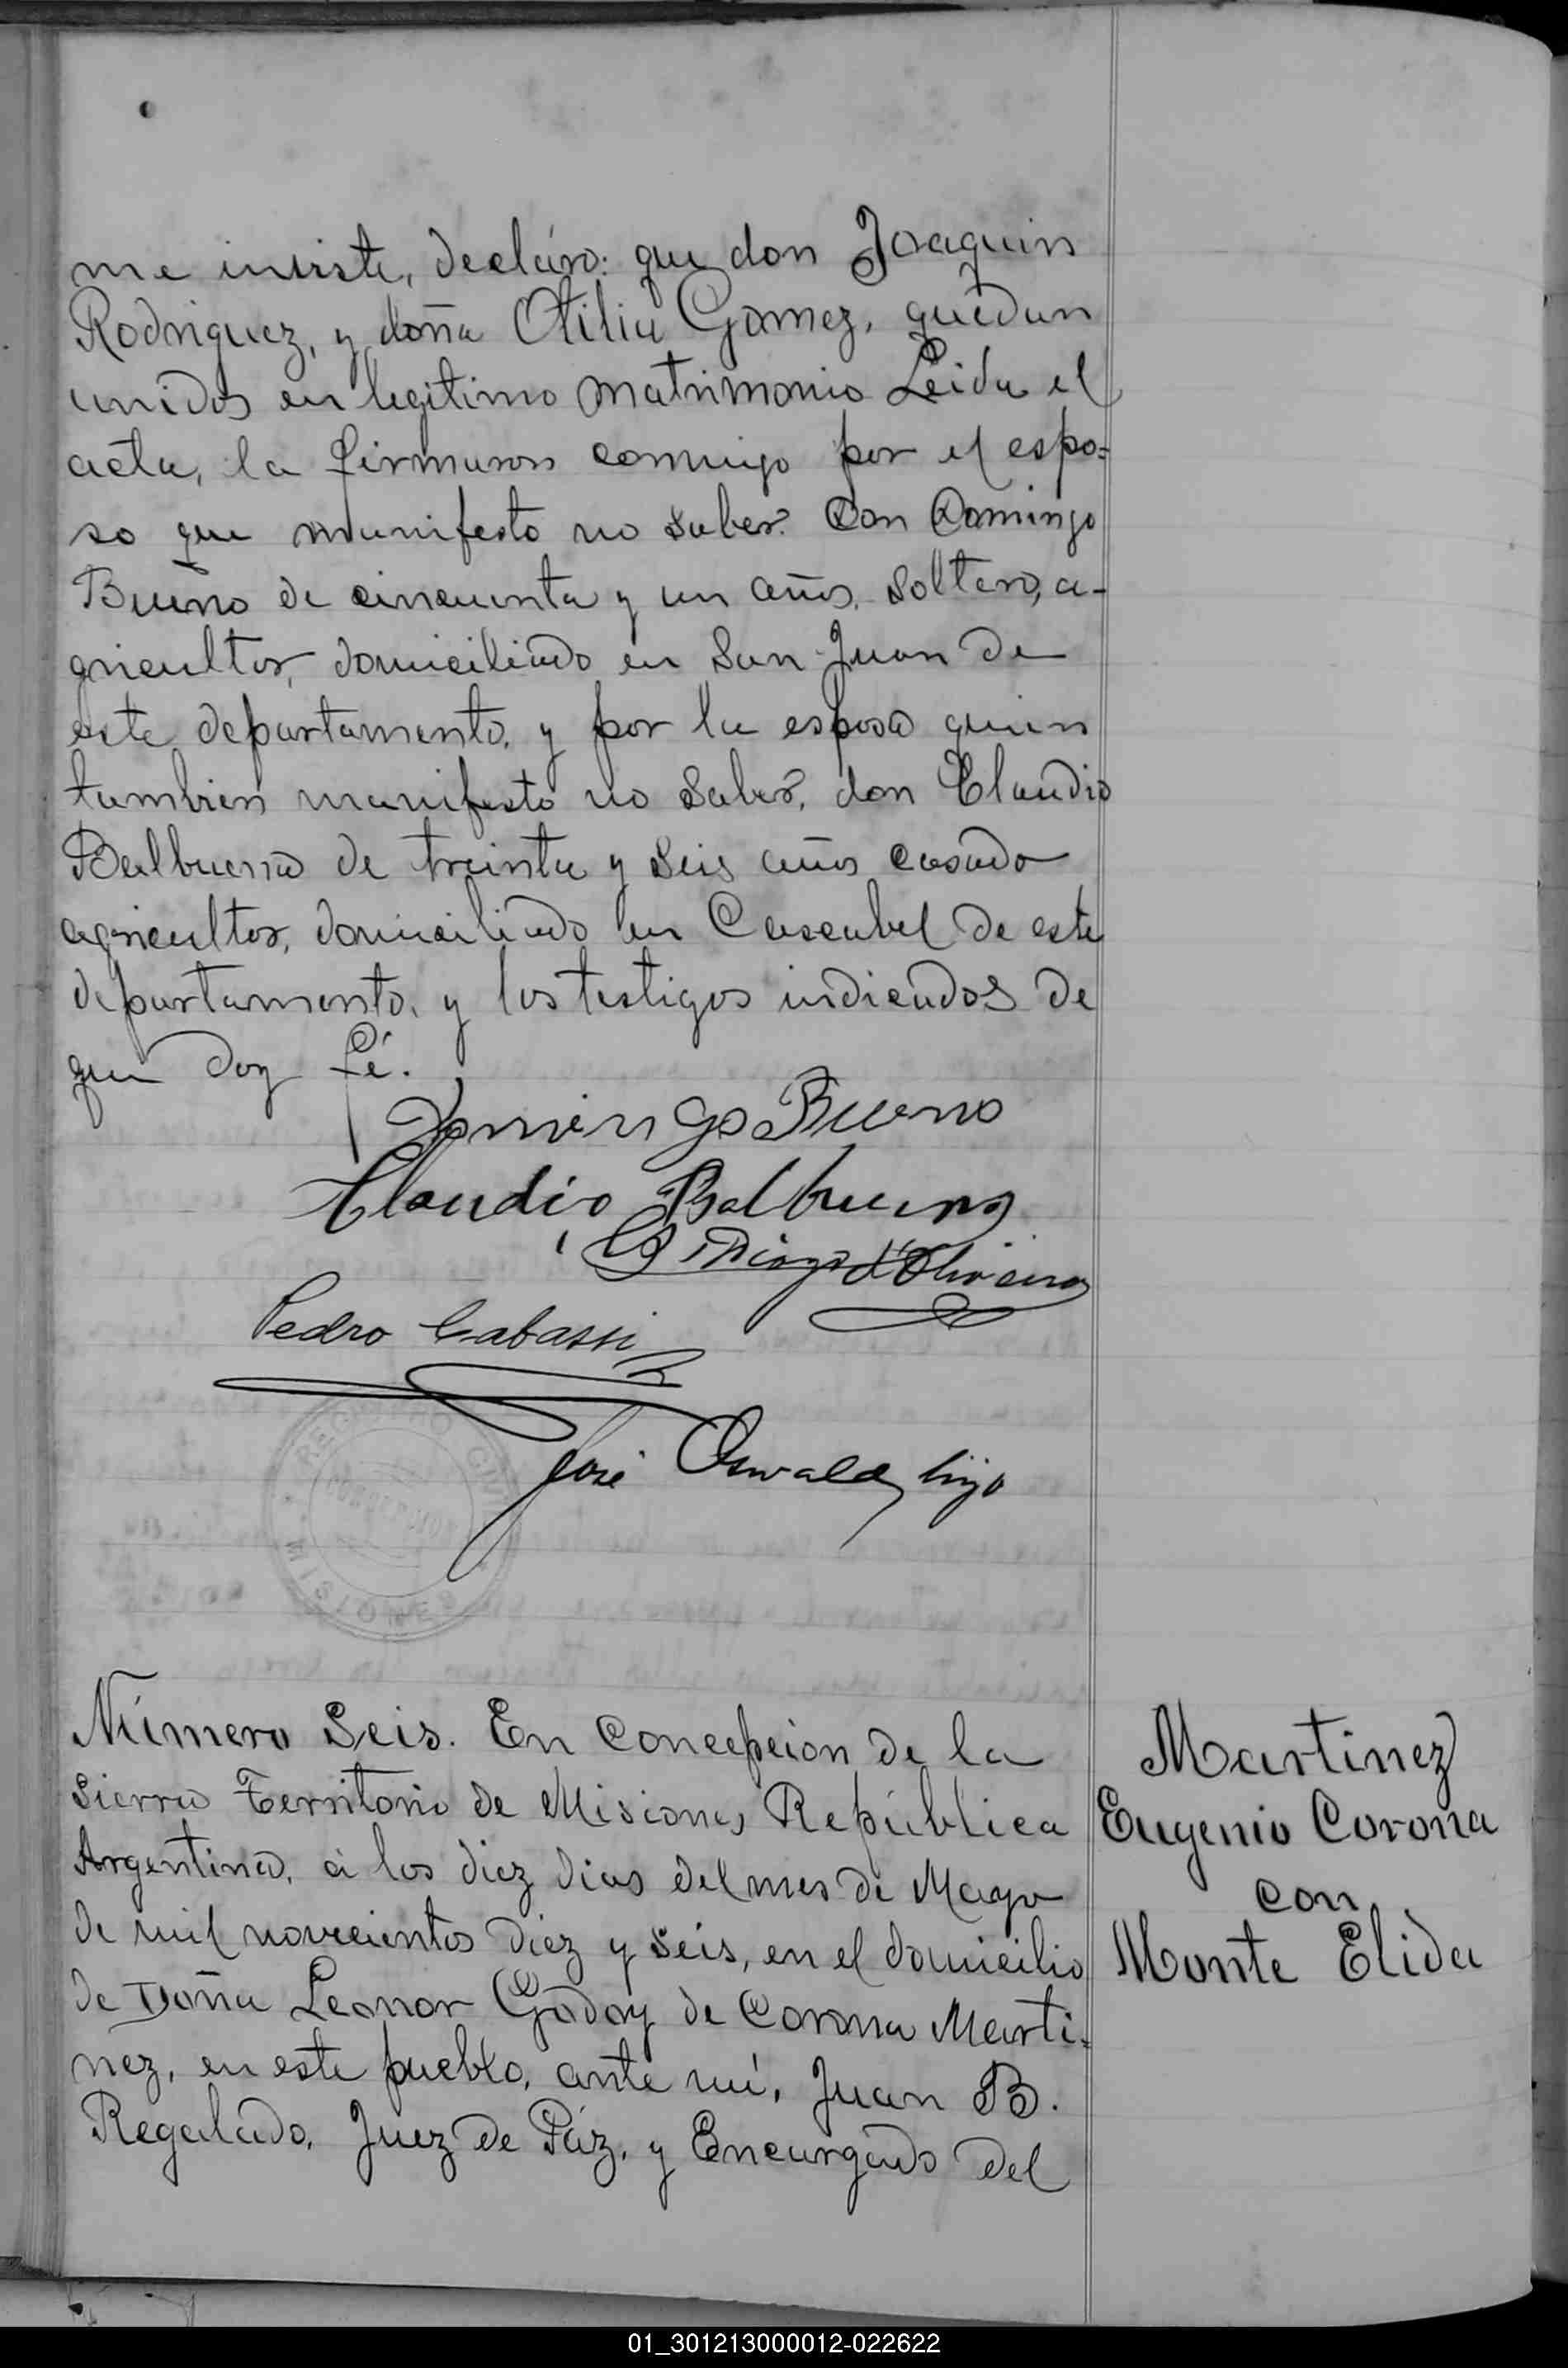 me inviste, decláro: que don Joaquin
Rodriguez, y doña Otilia Gomez, quedan
unidos en legitimo matrimonio Leida el
acta, la firmaron conmigo por el espo=
so que manifesto no saber. Don Domingo
Bueno de cincuenta y un años, soltero, a-
gricultor, domiciliado en San Juan de
este departamento, y por la esposa quien
tambien manifesto no saber, don Claudio
Balbuena de treinta y seis años casado
agricultor, domiciliado en Cascabel de este
departamento, y los testigos indicados de
que doy fé.
Domingo Bueno
Claudio Balbuena
d'Oliveira
Pedro Cabassi
José Oswald hijo
REGISTRO CIVIL
CONCEPCION
MISIONES
Número Seis. En Concepcion de la
Sierra Territorio de Misiones República
Argentina, á los diez dias del mes de Mayo
de mil novecientos diez y seis, en el domicilio
de Doña Leonor Godoy de Corona Marti=
nez, en este pueblo, ante mí, Juan B.
Regalado, Juez de Páz, y Encargado del
Martinez
Eugenio Corona
con
Monte Elida
01_301213000012-022622